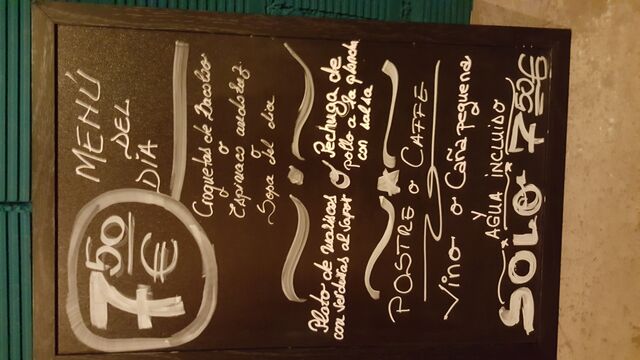 MENÚ
DEL
DÍA
7'50
€
Croquetas de Bacalao
o
Espinaco
o
Sopa del dia
Plato de mariscos
con verduritas al vapor
o
Pechuga de
pollo a la plancha
con salsa
POSTRE o CAFFE
Vino o Caña pequena
y
AGUA INCLUIDO
SOLO 7'50€